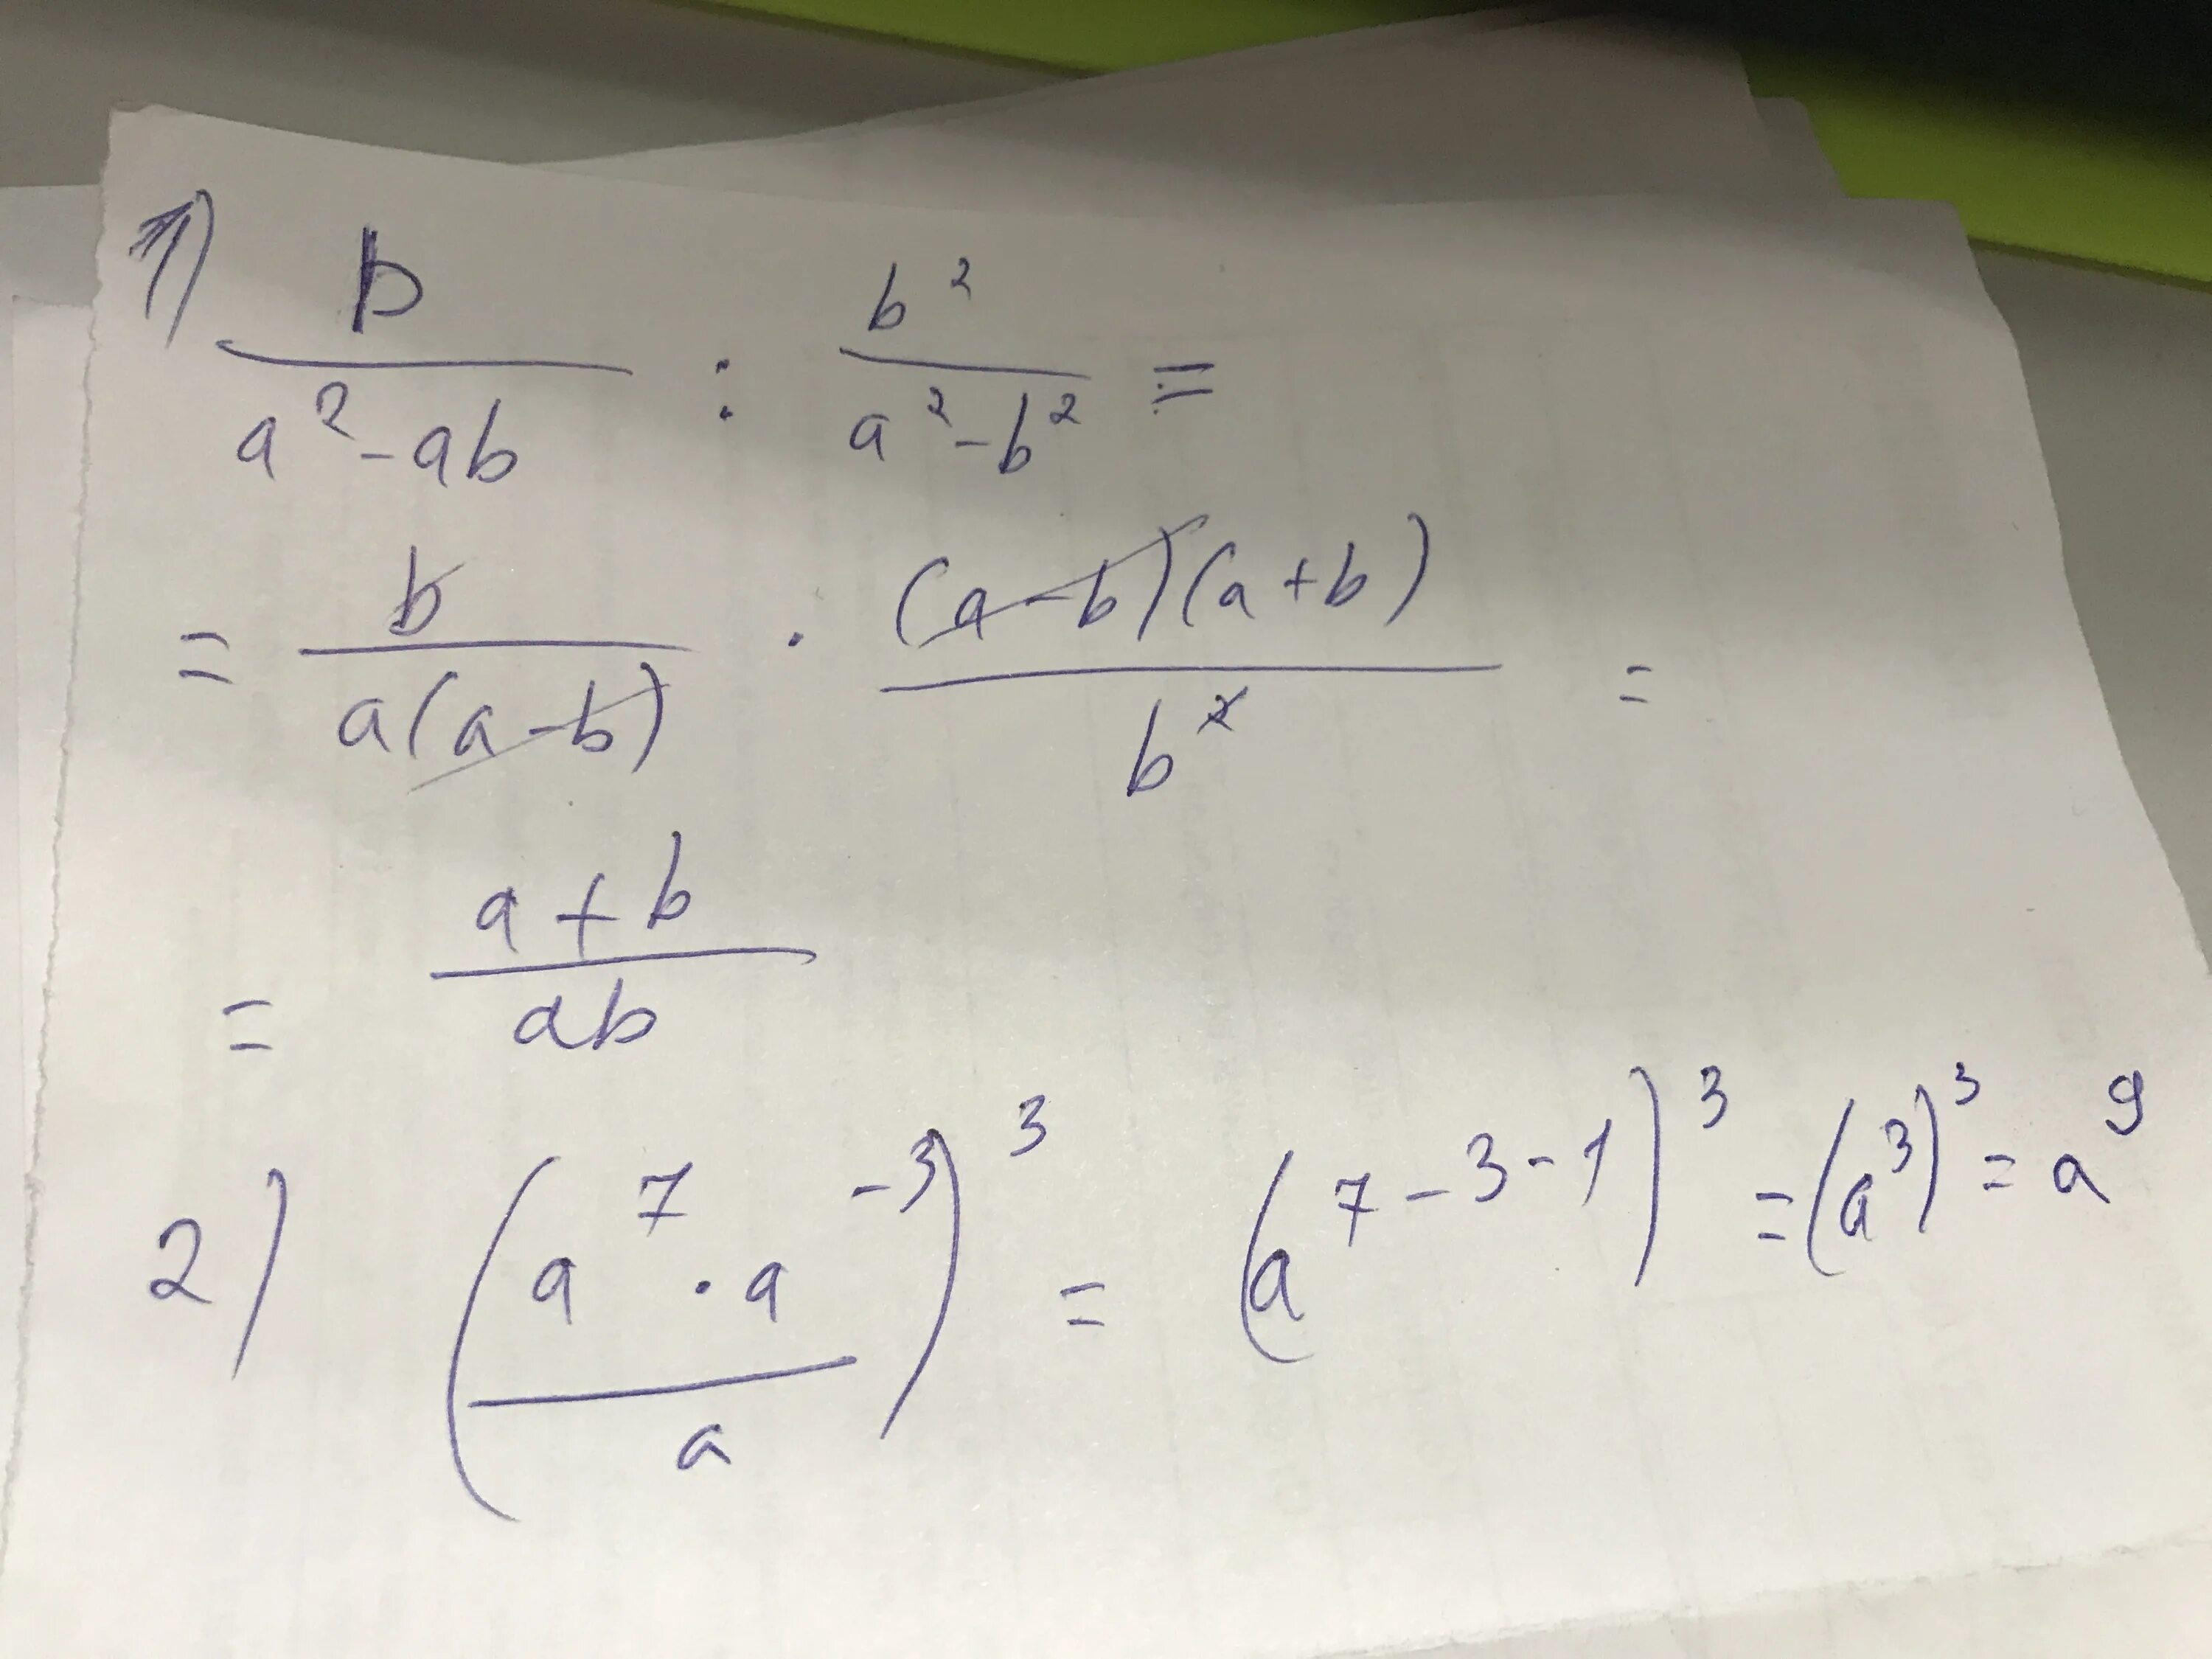 1) b / (a² - ab) : b² / (a² - b²) =
= b / (a(a - b)) · (a - b)(a + b) / b² =
= (a + b) / (ab)
2) ((a⁷ · a⁻³) / a)³ = (a⁷⁻³⁻¹)³ = (a³)³ = a⁹